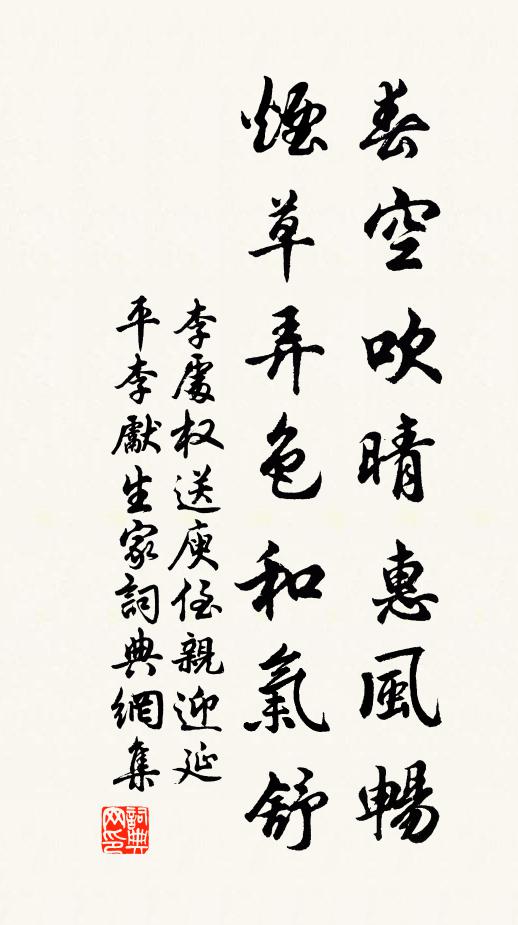 春空吹晴惠風暢
煙草弄色和氣舒
李處权送庾侄親迎延
平李獻生家詞典網集
詞典网印